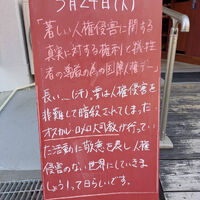 3月24日(火)
「著しい人権侵害に関する
真実に対する権利と犠牲
者の尊厳の為の国際人権デー」
長い…(汗)実は人権侵害を
非難して暗殺されてしまった
オスカル・ロメロ大司教が行ってい
た活動に敬意を表し人権
侵害のない世界にしていきま
しょうって日らしいです。